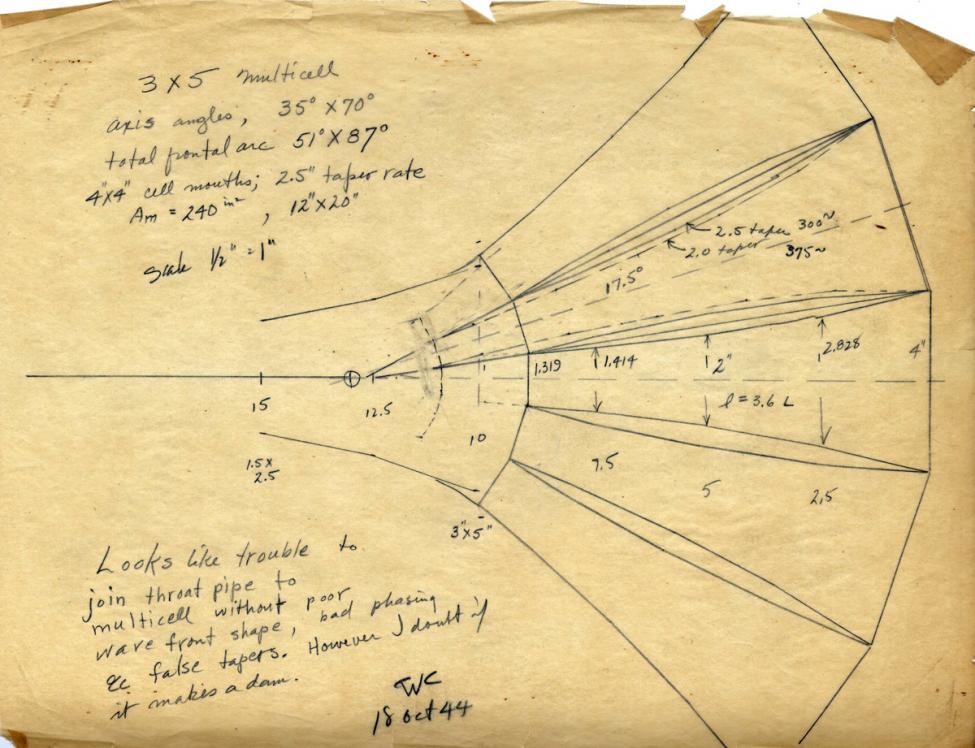 3 X 5 multicell
axis angles, 35° X 70°
total frontal arc 51° X 87°
4"X4" cell mouths; 2.5" taper rate
Am = 240 in², 12"X20"
Scale 1/2" = 1"
2.5 taper 300~
2.0 taper 375~
17.5°
1.319
1.414
2"
2.828
4"
l = 3.6 L
15
12.5
10
7.5
5
2.5
1.5 X
2.5
3"X5"
Looks like trouble to
join throat pipe to
multicell without poor
wave front shape, bad phasing
&c false tapers. However I doubt if
it makes a dam.
TWC
18 Oct 44